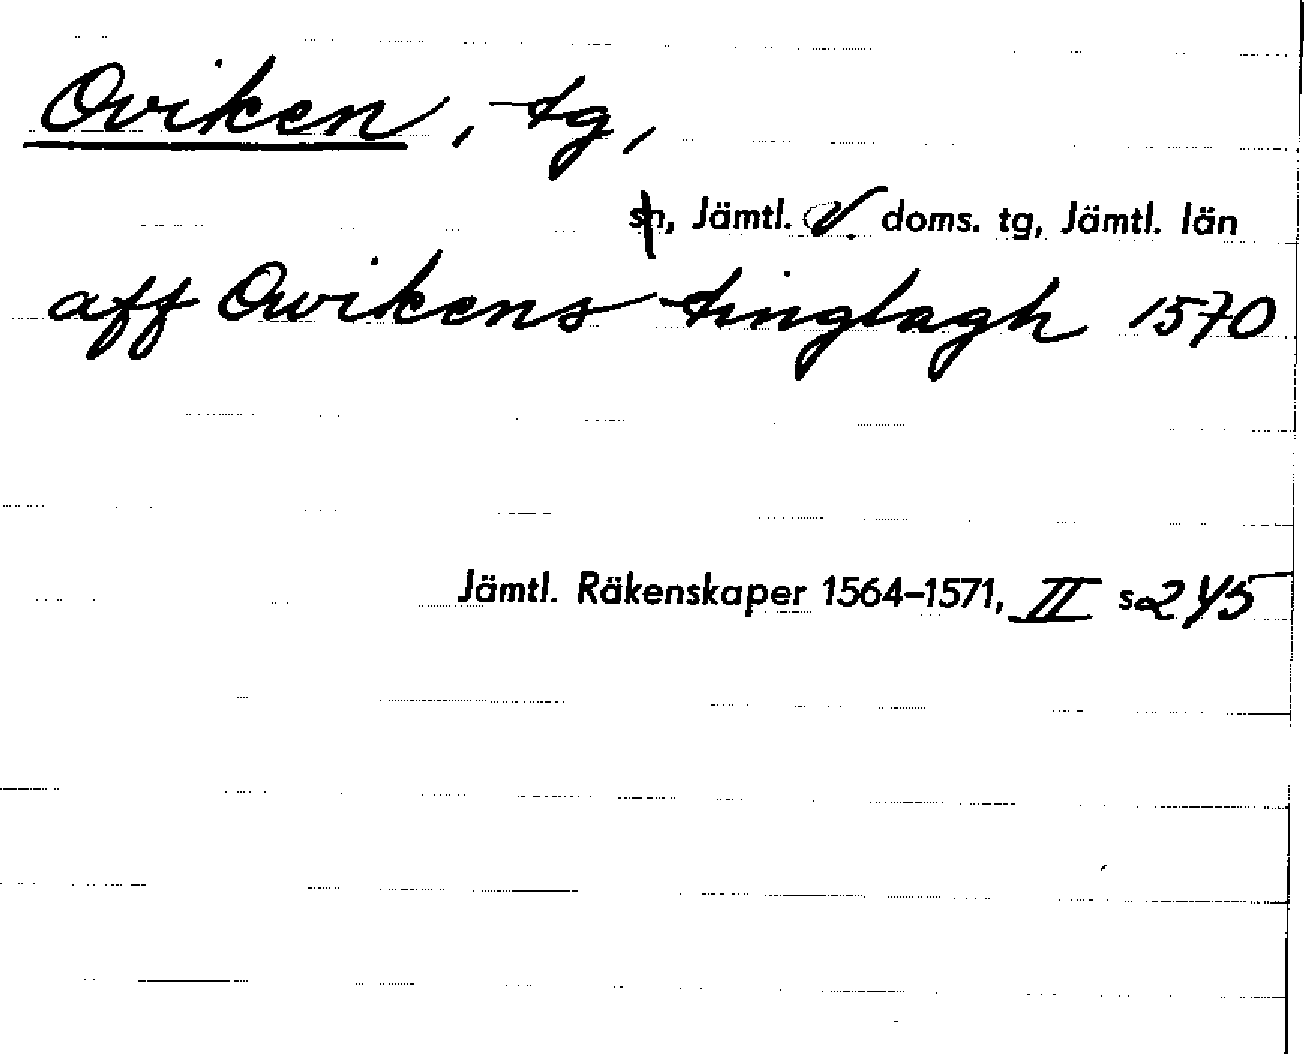 Oviken, tg,
sn, Jämtl. V. doms. tg, Jämtl. län
aff Owikens tinglagh 1570
Jämtl. Räkenskaper 1564–1571, II s. 245